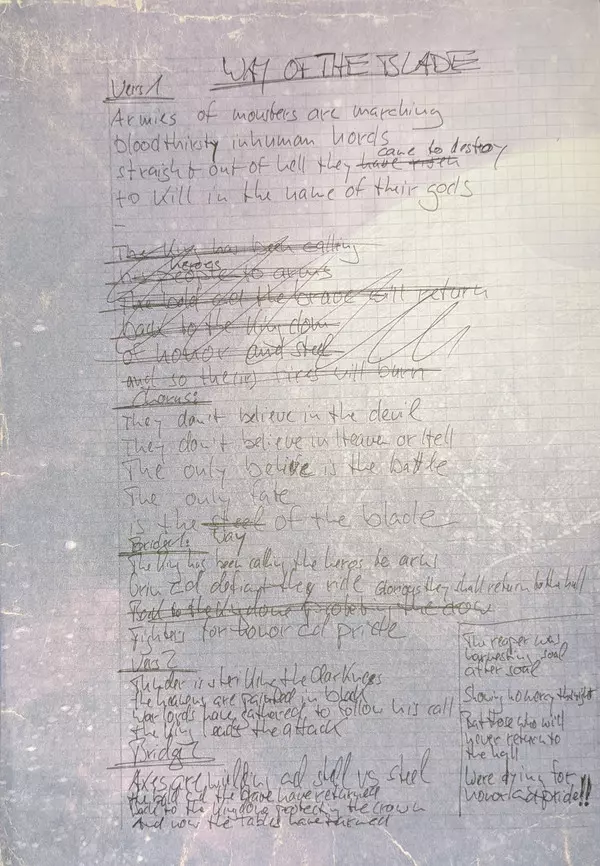 WAY OF THE BLADE
Vers 1
Armies of monsters are marching
bloodthirsty inhuman hords
came to destroy
straight out of hell they have risen
to kill in the name of their gods
–
The King has been calling
heroes
his people to arms
The bold and the brave will return
back to the Kingdom
of honor and steel
and so the fires will burn
Chorus:
They don't believe in the devil
They don't believe in Heaven or Hell
The only believe is the battle
The only fate
is the steel of the blade
Way
Bridge 1:
The King has been calling the heros to arms
Grim and defiant they ride Glorious they shall return to the hall
Back to the Kingdom protecting the crow
Fighters for honor and pride
Vers 2
Thunder is striking the Darkness
the heavens are painted in black
warlords have gathered to follow his call
the King leads the attack
Bridge 2
Axes are and steel vs steel
the bold and the brave have returned
back to the kingdom protecting the crown
And now the tables have turned
The reaper was
harvesting soul
after soul
Showing no mercy that night
But those who will
never return to
the hall
Were dying for
honor and pride!!